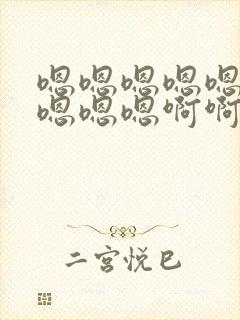 嗯嗯嗯嗯嗯
嗯嗯嗯啊啊
二宫悦巳